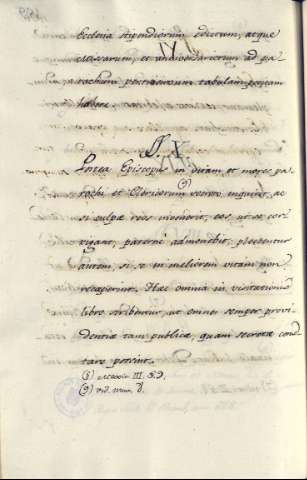 Ecclesia stipendiorum ederunt, atque
et ad pa-
rochum pertinentium tabulam
habere.
§. X.
Postea Episcopus in vitam et mores pa-
rochi et Clericorum (9) inquiret, ac
si culpæ reos invenerit, eos, ut se cor-
rigant, paterne admonebit, plectentur
autem, si se in meliorem vitam non
receperint. Hæc omnia in visitationis
libro scribentur, ut omnes semper provi-
dentiæ tam publicæ, quam secretæ cons-
tare poterint.
III.
(9) vid. num.